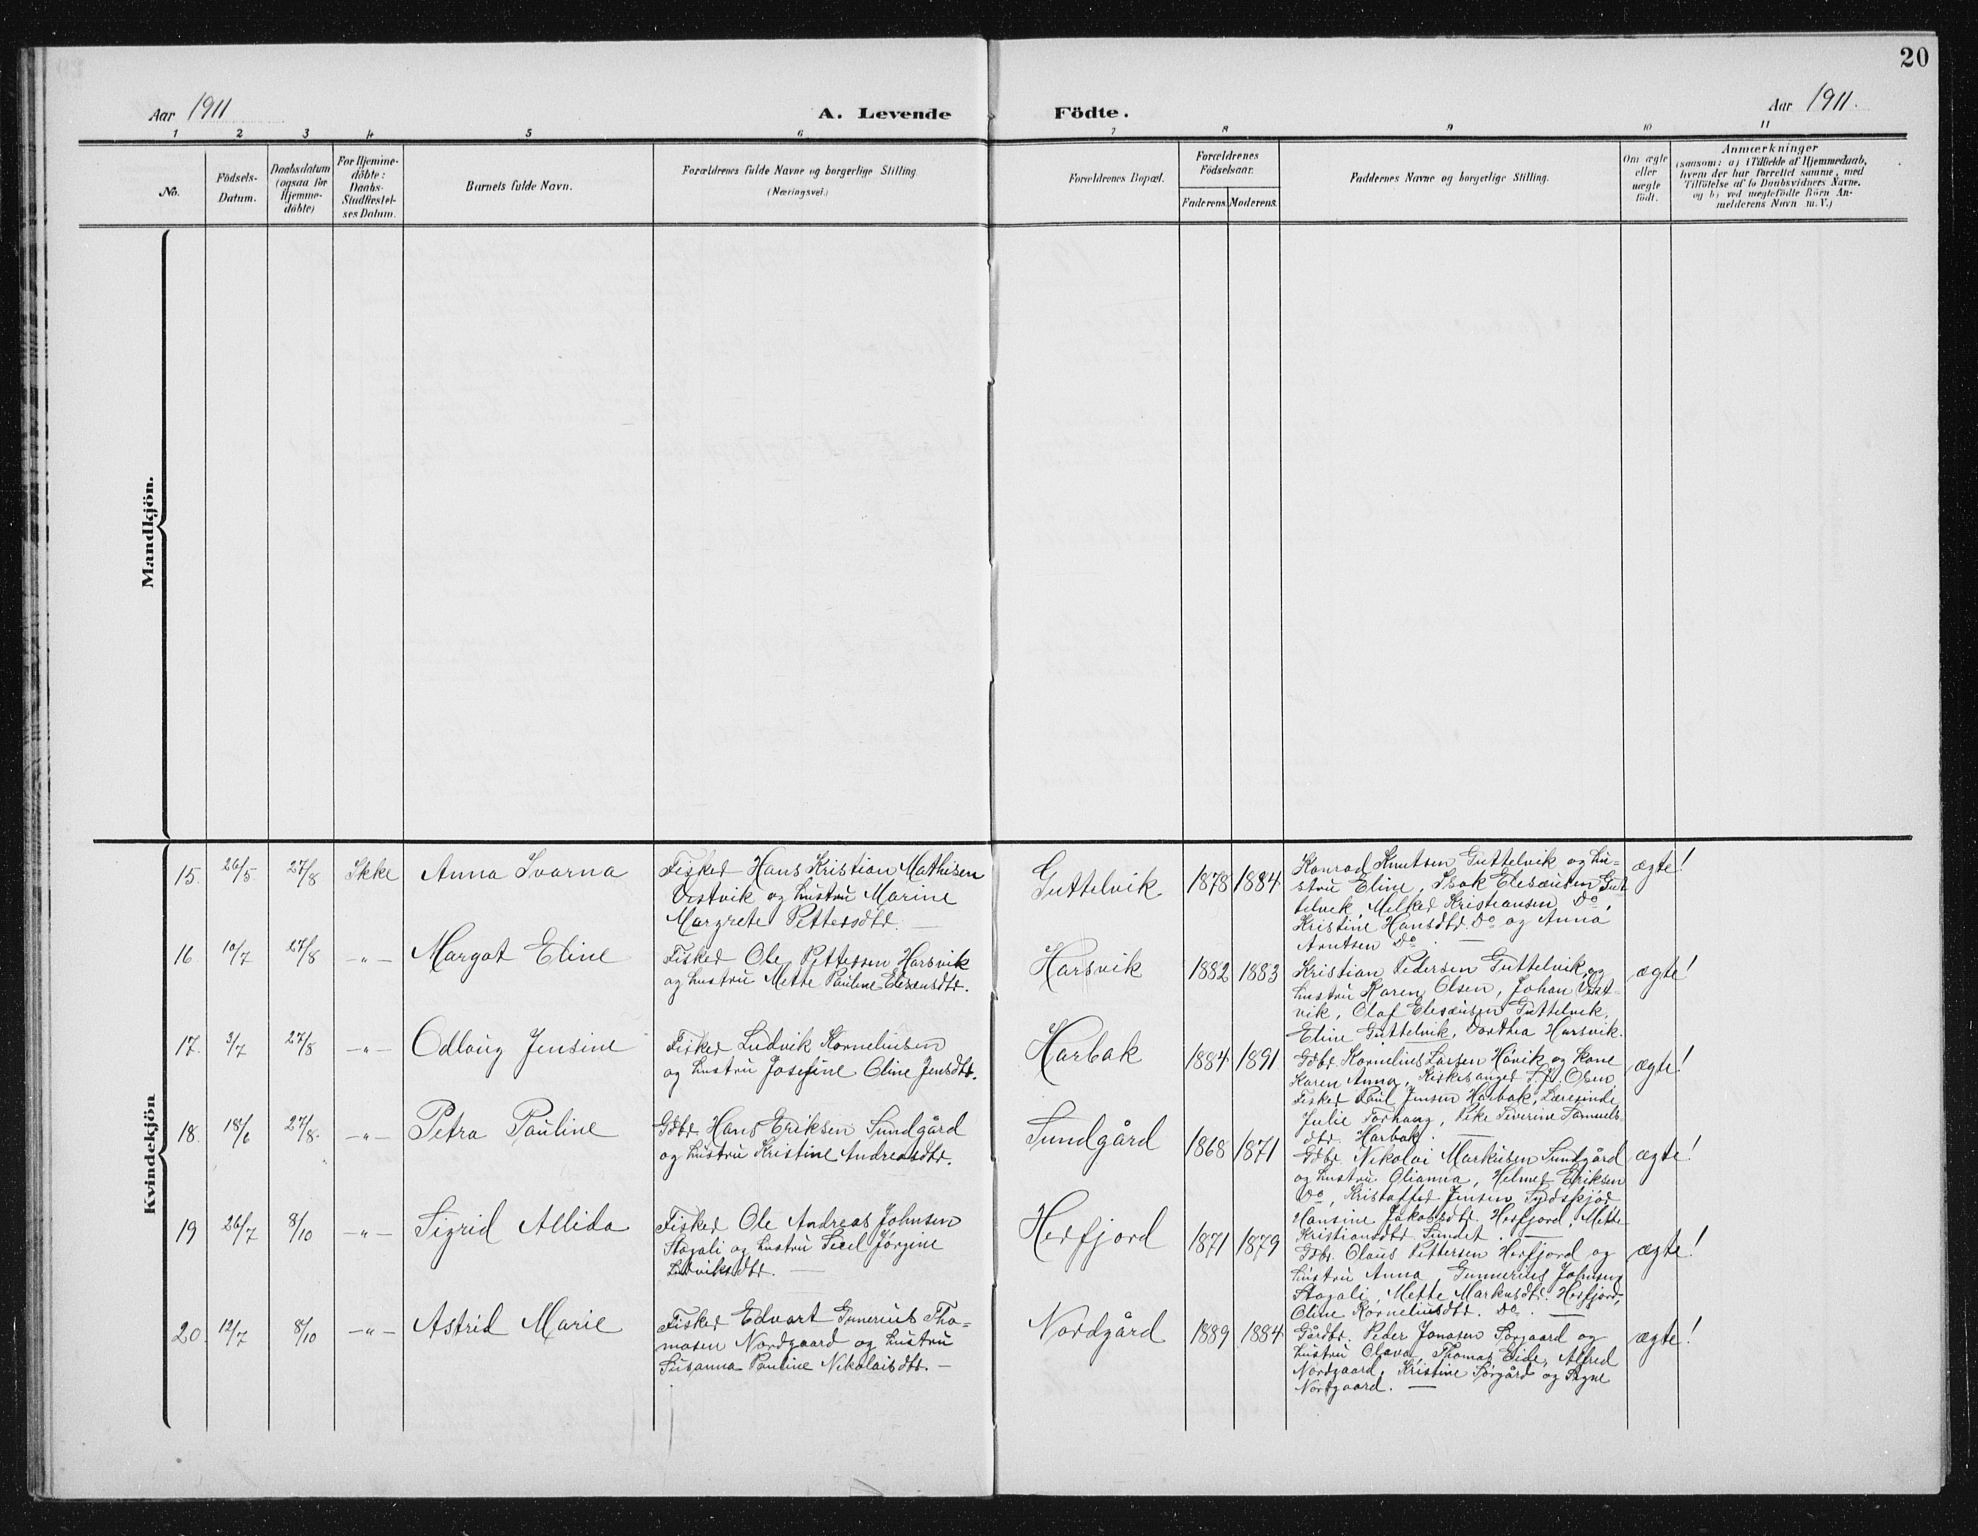 20
Aar 1911
A. Levende Födte.
Aar 1911.
1 2 3 4 5 6 7 8 9 10 11
No.
Födsels-
Datum.
Daabsdatum
(ogsaa for
Hjemme-
döbte)
For Hjemme-
döbte:
Daabs-
Stadfæstel-
ses Datum.
Barnets fulde Navn.
Forældrenes fulde Navne og borgerlige Stilling
(Næringsvei.)
Forældrenes Bopæl.
Forældrenes
Födselsaar.
Faderens. Moderens.
Faddernes Navne og borgerlige Stilling.
Om ægte
eller
uægte
födt.
Anmærkninger
(saasom: a) i Tilfælde af Hjemmedaab,
hvem der har forrettet samme, med
Tilföielse af to Daabsvidners Navne,
og b) ved uægtefödte Börn An-
melderens Navn m. V.)
Mandkjön.
Kvindekjön
15. 26/5 27/8 Ikke Anna Svarna
Fisker Hans Kristian Mathisen
Vestvik og hustru Marine
Margrete Pettersdtr. —
Guttelvik 1878 1884
Konrad Knutsen Guttelvik og hu-
stru Eline, Isak Elesæusen Gut
telvik, Melker Kristiansen Do,
Kristine Hansdtr. Do og Anna
Arntsen Do. —
ægte!
16 10/7 27/8 —"— Margot Eline
Fisker Ole Pettersen Harsvik
og hustru Mette Pauline Elesæusdtr.
Harsvik 1882 1883
Kristian Pedersen Guttelvik og
hustru Karen Olsen, Johan Vest-
vik, Olaf Elesæusen Guttelvik,
Eline Guttelvik, Dorthea Harsvik.
ægte!
17. 3/7 27/8 —"— Odlaug Jensine
Fisker Ludvik Korneliusen
og hustru Josefine Oline Jensdtr.
Harbak 1884 1891
Gdbr. Kornelius Larsen Håvik og kone
Karen Anna, Kirkesanger Olsen,
Fisker Paul Jensen Harbak, Lærerinde
Julie Forhaug, Pike Severine Samuels-
dtr. Harbak. —
ægte!
18. 18/6 27/8. —"— Petra Pauline
Gdbr. Hans Eriksen Sundgård
og hustru Kristine Andreasdtr.
Sundgård 1868 1871
Gdbr. Nikolai Markusen Sundgård
og hustru Olianna, Helmer Eriksen
Do, Kristoffer Jensen Sydskjør
Hansine Jakobsdtr. Herfjord, Mette
Kristiansdtr. Sundet. —
ægte!
19 26/7 8/10 —"— Sigrid Allida
Fisker Ole Andreas Johnsen
Stagali og hustru Secel Jørgine
Ludviksdtr. —
Herfjord 1871 1879
Gdbr. Olaus Pettersen Herfjord og
hustru Anna Gunnerius Johnsen
Stagali, Mette Markusdtr. Herfjord,
Oline Korneliusdtr. Do. —
ægte!
20. 12/7 8/10 —"— Astrid Marie
Fisker Edvart Gunerius Tho-
masen Nordgaard og hustru
Susanna Pauline Nikolaisdtr. —
Nordgård 1889 1884
Gårdbr. Peder Jonasen Sørgaard og
hustru Olava, Thomas Eide, Alfred
Nordgaard, Kristine Sørgård og Signe
Nordgaard. —
ægte!